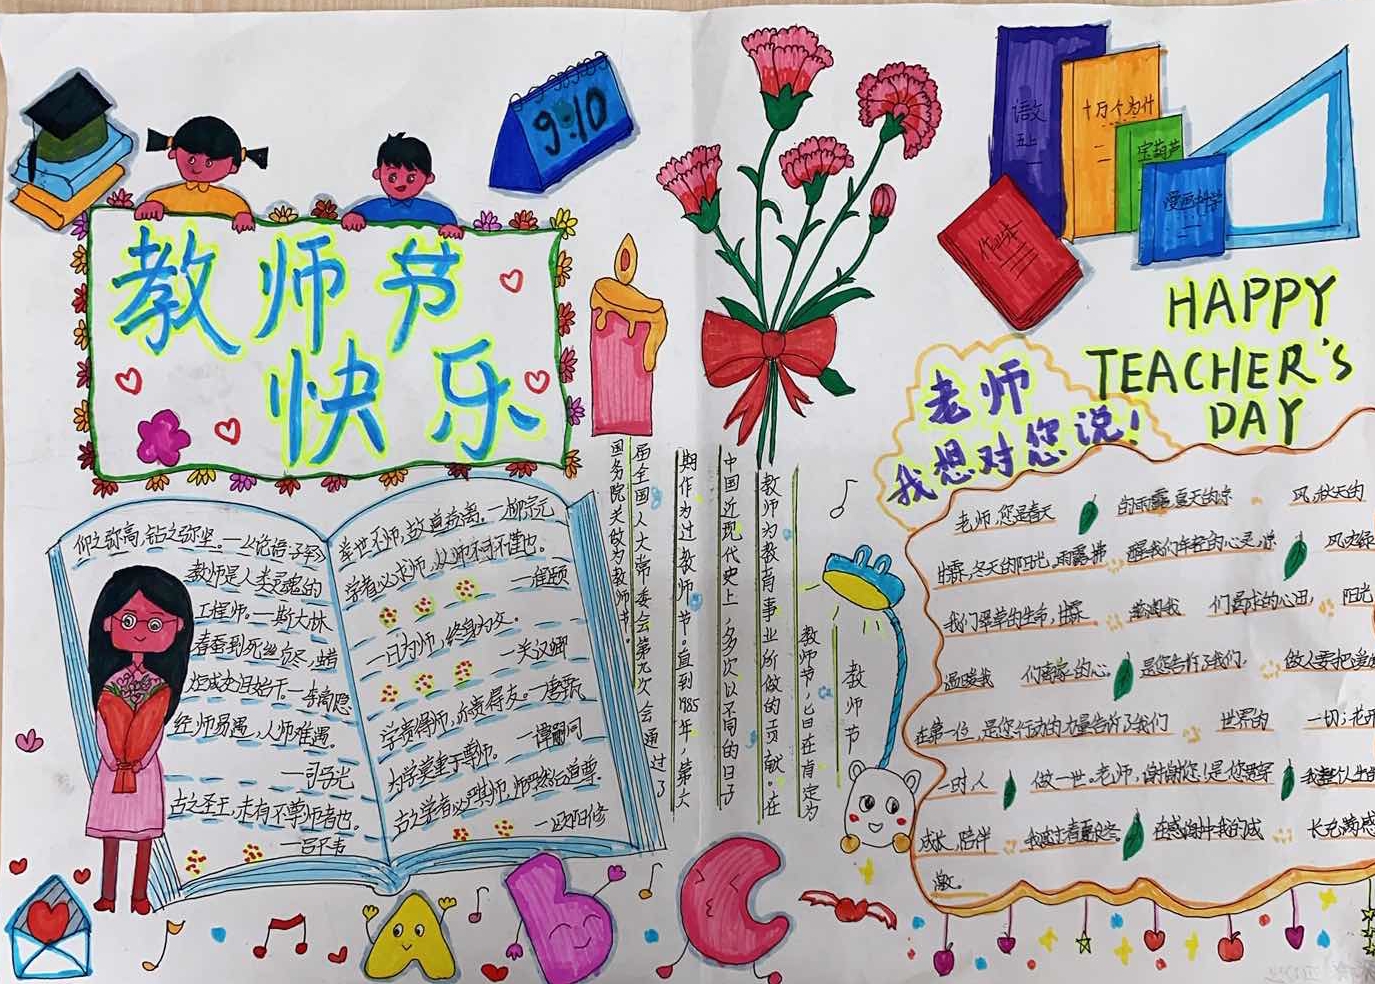 9.10
教师节
快乐
语文
五上
十万个为什
二
宝葫芦
漫画科学
作业本
HAPPY
TEACHER'S
DAY
老师
我想对您说！
仰之弥高,钻之弥坚。—《论语·子罕》
教师是人类灵魂的
工程师。—斯大林
春蚕到死丝方尽,蜡
炬成灰泪始干。—李商隐
经师易遇,人师难遇。
—司马光
古之圣王,未有不尊师者也。
—吕不韦
举世不师,故道益离。—柳宗元
学者必求师,从师不可不谨也。
—程颐
一日为师,终身为父。
—关汉卿
学贵得师,亦贵得友。—唐甄
为学莫重于尊师。—谭嗣同
古之学者必严其师,师严然后道尊。
—欧阳修
教师节
教师节,已日在肯定为
教师为教育事业所做的贡献。在
中国近现代史上,多次以不同的日子
期作为过教师节。直到1985年,第六
届全国人大常委会第九次会通过了
国务院关故为教师节。
老师,您是春天 的雨露,夏天的凉 风,秋天的
甘霖,冬天的阳光,雨露拂 醒我们年轻的心灵,凉 风
我们翠草的生命,甘霖 滋润我 们渴求的心田, 阳光
温暖我 们 的心。 是您告诉了我们, 做人要把
在第一位,是您行动的力量告诉了我们 世界的 一切;花开
一时,人 做一世。老师,谢谢您!是您 我 人生的
成长,陪伴 我 春夏秋冬。 在感谢中我的成 长充满感
激。
A
B
C